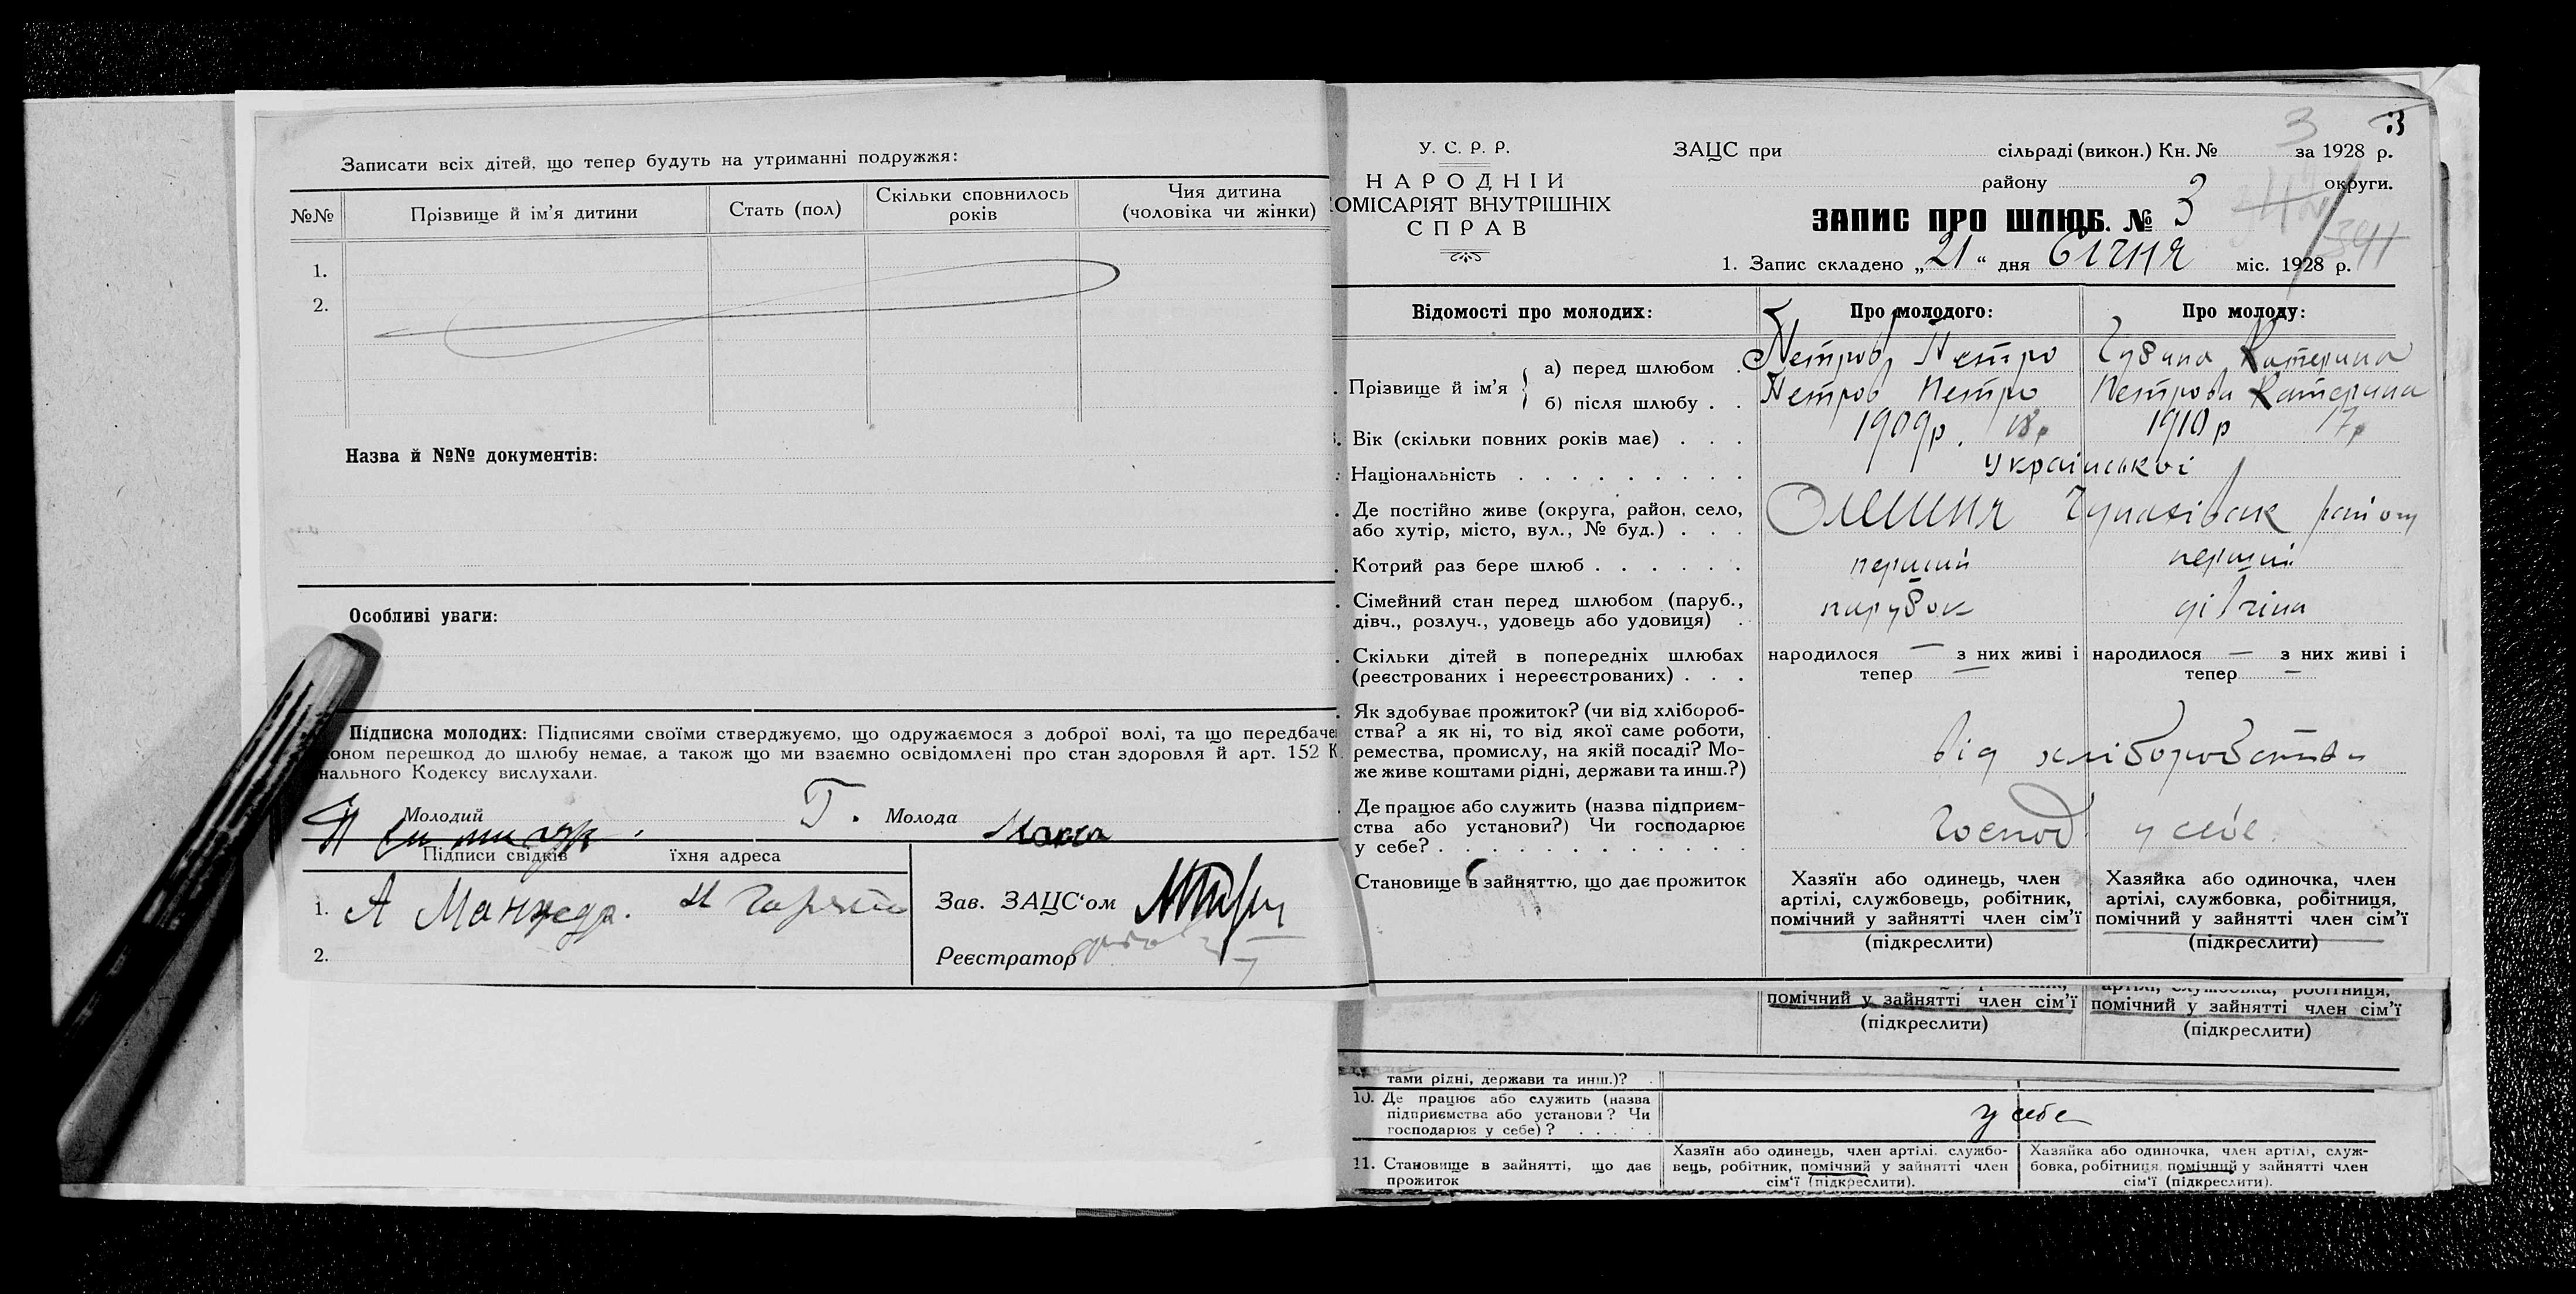 Записати всіх дітей, що тепер будуть на утриманні подружжя:
№№ Прізвище й ім'я дитини Стать (пол) Скільки сповнилось років Чия дитина (чоловіка чи жінки)
1.
2.
Назва й №№ документів:
Особливі уваги:
Підписка молодих: Підписями своїми стверджуємо, що одружаємося з доброї волі, та що передбаче
оном перешкод до шлюбу немає, а також що ми взаємно освідомлені про стан здоровля й арт. 152 К
нального Кодексу вислухали.
Молодий Молода
Підписи свідків їхня адреса
1. А
2.
Зав. ЗАЦС'ом
Реєстратор
3 3
У. С. Р. Р.
НАРОДНІЙ
ОМІСАРІЯТ ВНУТРІШНІХ
СПРАВ
ЗАЦС при сільраді (викон.) Кн. № за 1928 р.
району округи.
ЗАПИС ПРО ШЛЮБ. № 3
1. Запис складено „21“ дня Січня міс. 1928 р.
Відомості про молодих: Про молодого: Про молоду:
Прізвище й ім'я
а) перед шлюбом Петров Петро Катерина
б) після шлюбу Петров Петро Петрова Катерина
Вік (скільки повних років має) 1909р. 18р 1910р 17р
Національність української
Де постійно живе (округа, район, село,
або хутір, місто, вул., № буд.) Олешня району
Котрий раз бере шлюб перший перший
Сімейний стан перед шлюбом (паруб.,
дівч., розлуч., удовець або удовиця) парубок дівчина
Скільки дітей в попередніх шлюбах
(реєстрованих і нереєстрованих)
народилося — з них живі і
тепер —
народилося — з них живі і
тепер —
Як здобуває прожиток? (чи від хлібороб-
ства? а як ні, то від якої саме роботи,
ремества, промислу, на якій посаді? Мо-
же живе коштами рідні, держави та инш.?)
від хліборобства
Де працює або служить (назва підприєм-
ства або установи?) Чи господарює
у себе?
Господ. у себе.
Становище в зайняттю, що дає прожиток
Хазяїн або одинець, член
артілі, службовець, робітник,
помічний у зайнятті член сім'ї
(підкреслити)
Хазяйка або одиночка, член
артілі, службовка, робітниця,
помічний у зайнятті член сім'ї
(підкреслити)
помічний у зайнятті член сім'ї
(підкреслити)
артілі, службовка, робітниця,
помічний у зайнятті член сім'ї
(підкреслити)
тами рідні, держави та инш.)?
10. Де працює або служить (назва
підприємства або установи? Чи
господарює у себе)?
у себе
11. Становище в зайнятті, що дає
прожиток
Хазяїн або одинець, член артілі, службо-
вець, робітник, помічний у зайнятті член
сім'ї (підкреслити).
Хазяйка або одиночка, член артілі, служ-
бовка, робітниця, помічний у зайнятті член
сім'ї (підкреслити).